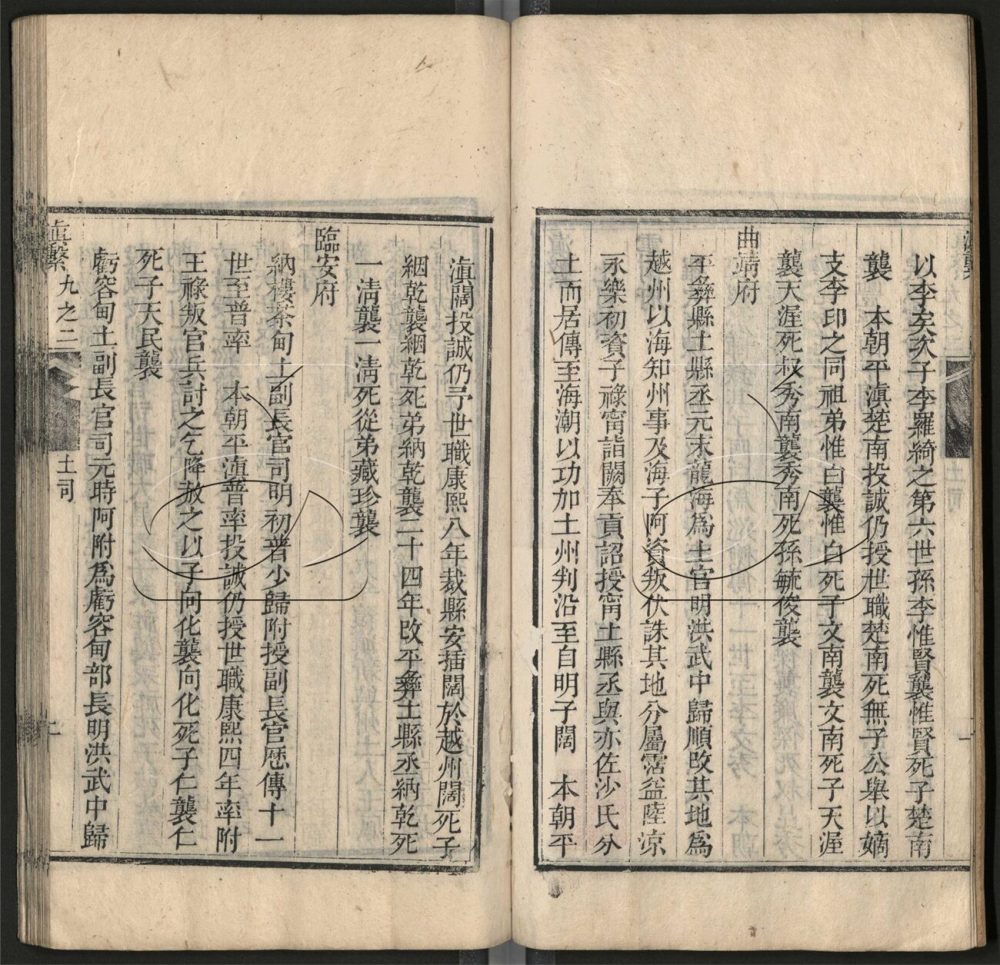 以李矣欠子李羅綺之第六世孫李惟賢襲惟賢死子楚南
襲　本朝平滇楚南投誠仍授世職楚南死無子公舉以嫡
支李印之同祖弟惟白襲惟白死子文南襲文南死子天渥
襲天渥死叔秀南襲秀南死孫毓俊襲
曲靖府
平彝縣土縣丞元末龍海爲土官明洪武中歸順改其地爲
越州以海知州事及海子阿資叛伏誅其地分屬霑益陸涼
永樂初資子祿甯詣闕奉貢詔授甯土縣丞與亦佐沙氏分
土而居傳至海潮以功加土州判沿至自明子闊　本朝平
滇闊投誠仍予世職康熙八年裁縣安插闊於越州闊死子
絪乾襲絪乾死弟納乾襲二十四年改平彝土縣丞納乾死
一清襲一清死從弟藏珍襲
臨安府
納樓茶甸土副長官司明初普少歸附授副長官歷傳十一
世至普率　本朝平滇普率投誠仍授世職康熙四年率附
王祿叛官兵討之乞降赦之以子向化襲向化死子仁襲仁
死子天民襲
虧容甸土副長官司元時阿附爲虧容甸部長明洪武中歸
滇繫　九之二　土司